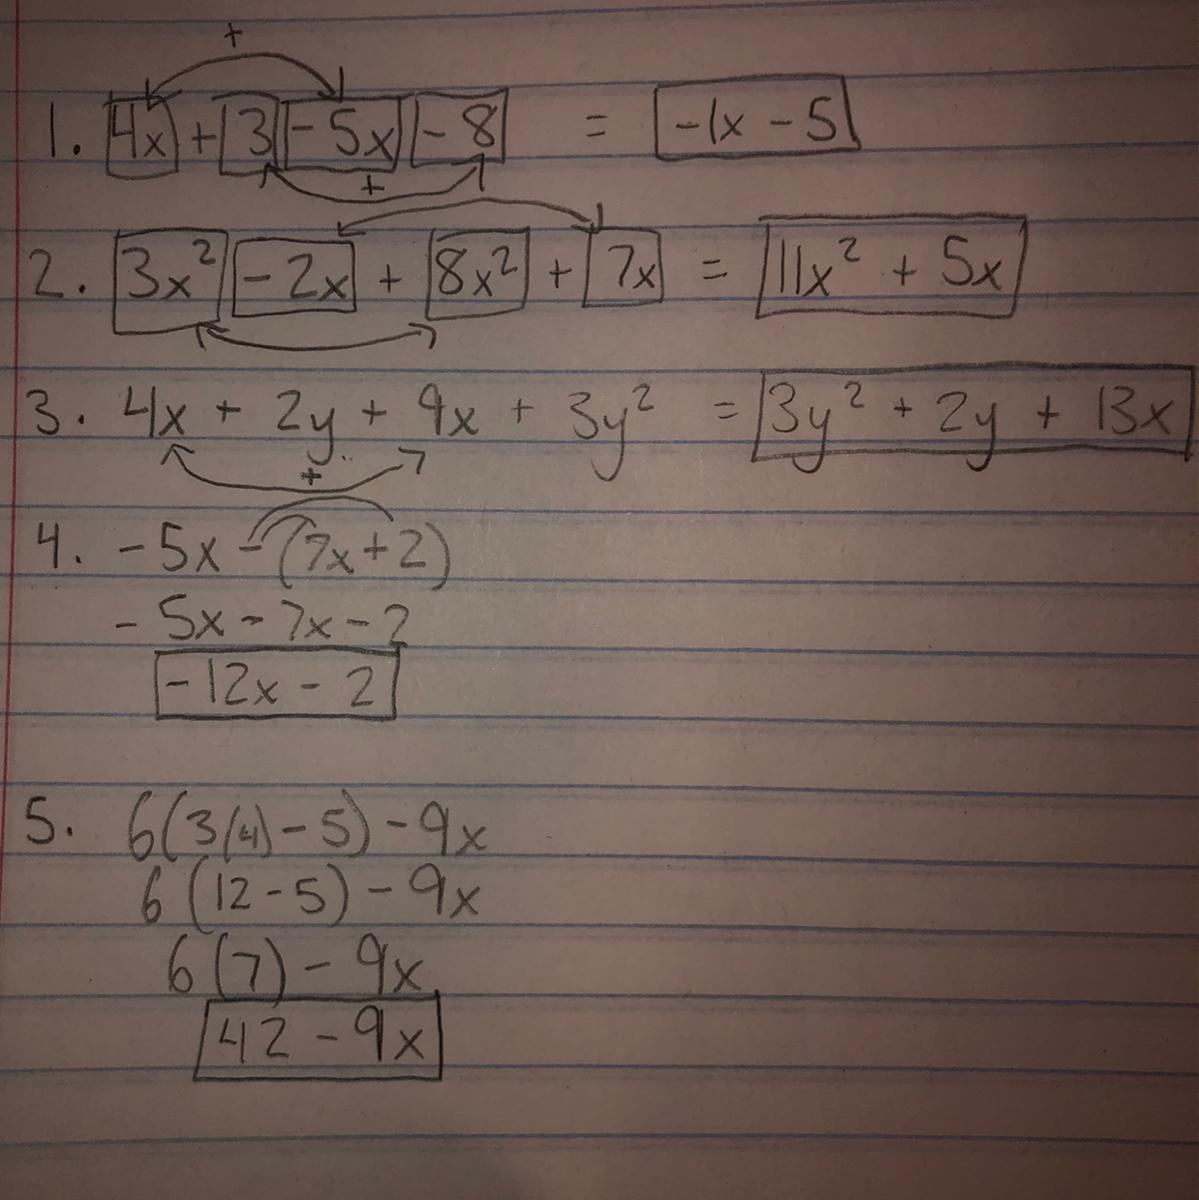 +
1. 4x + 3 - 5x - 8 = -1x - 5
+
2. 3x² - 2x + 8x² + 7x = 11x² + 5x
3. 4x + 2y + 9x + 3y² = 3y² + 2y + 13x
+
4. -5x - (7x + 2)
-5x - 7x - 2
-12x - 2
5. 6(3(4) - 5) - 9x
6(12 - 5) - 9x
6(7) - 9x
42 - 9x